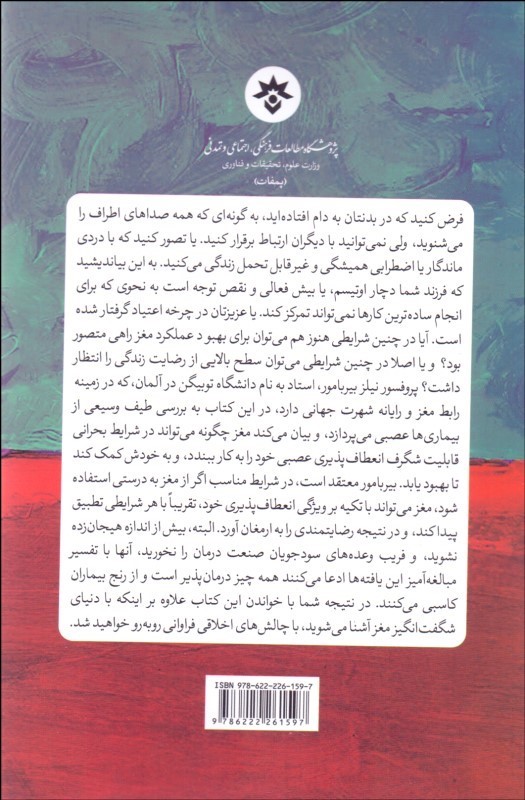 پژوهشگاه مطالعات فرهنگی، اجتماعی و تمدنی
وزارت علوم، تحقیقات و فناوری
(پمفات)
فرض کنید که در بدنتان به دام افتاده‌اید، به گونه‌ای که همه صداهای اطراف را
می‌شنوید، ولی نمی‌توانید با دیگران ارتباط برقرار کنید. یا تصور کنید که با دردی
ماندگار یا اضطرابی همیشگی و غیرقابل تحمل زندگی می‌کنید. به این بیاندیشید
که فرزند شما دچار اوتیسم، یا بیش فعالی و نقص توجه است به نحوی که برای
انجام ساده‌ترین کارها نمی‌تواند تمرکز کند. یا عزیزتان در چرخه اعتیاد گرفتار شده
است. آیا در چنین شرایطی هنوز هم می‌توان برای بهبود عملکرد مغز راهی متصور
بود؟ و یا اصلا در چنین شرایطی می‌توان سطح بالایی از رضایت زندگی را انتظار
داشت؟ پروفسور نیلز بیربامور، استاد به نام دانشگاه توبیگن در آلمان، که در زمینه
رابط مغز و رایانه شهرت جهانی دارد، در این کتاب به بررسی طیف وسیعی از
بیماری‌ها عصبی می‌پردازد، و بیان می‌کند مغز چگونه می‌تواند در شرایط بحرانی
قابلیت شگرف انعطاف‌پذیری عصبی خود را به کار ببندد، و به خودش کمک کند
تا بهبود یابد. بیربامور معتقد است، در شرایط مناسب اگر از مغز به درستی استفاده
شود، مغز می‌تواند با تکیه بر ویژگی انعطاف‌پذیری خود، تقریباً با هر شرایطی تطبیق
پیدا کند، و در نتیجه رضایتمندی را به ارمغان آورد. البته، بیش از اندازه هیجان‌زده
نشوید، و فریب وعده‌های سودجویان صنعت درمان را نخورید، آنها با تفسیر
مبالغه‌آمیز این یافته‌ها ادعا می‌کنند همه چیز درمان‌پذیر است و از رنج بیماران
کاسبی می‌کنند. در نتیجه شما با خواندن این کتاب علاوه بر اینکه با دنیای
شگفت‌انگیز مغز آشنا می‌شوید، با چالش‌های اخلاقی فراوانی روبه‌رو خواهید شد.
ISBN 978-622-226-159-7
9 786222 261597